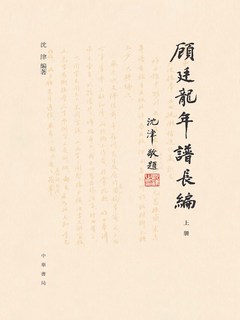 顧廷龍年譜長編
上册
沈津敬題
沈津 編著
中華書局